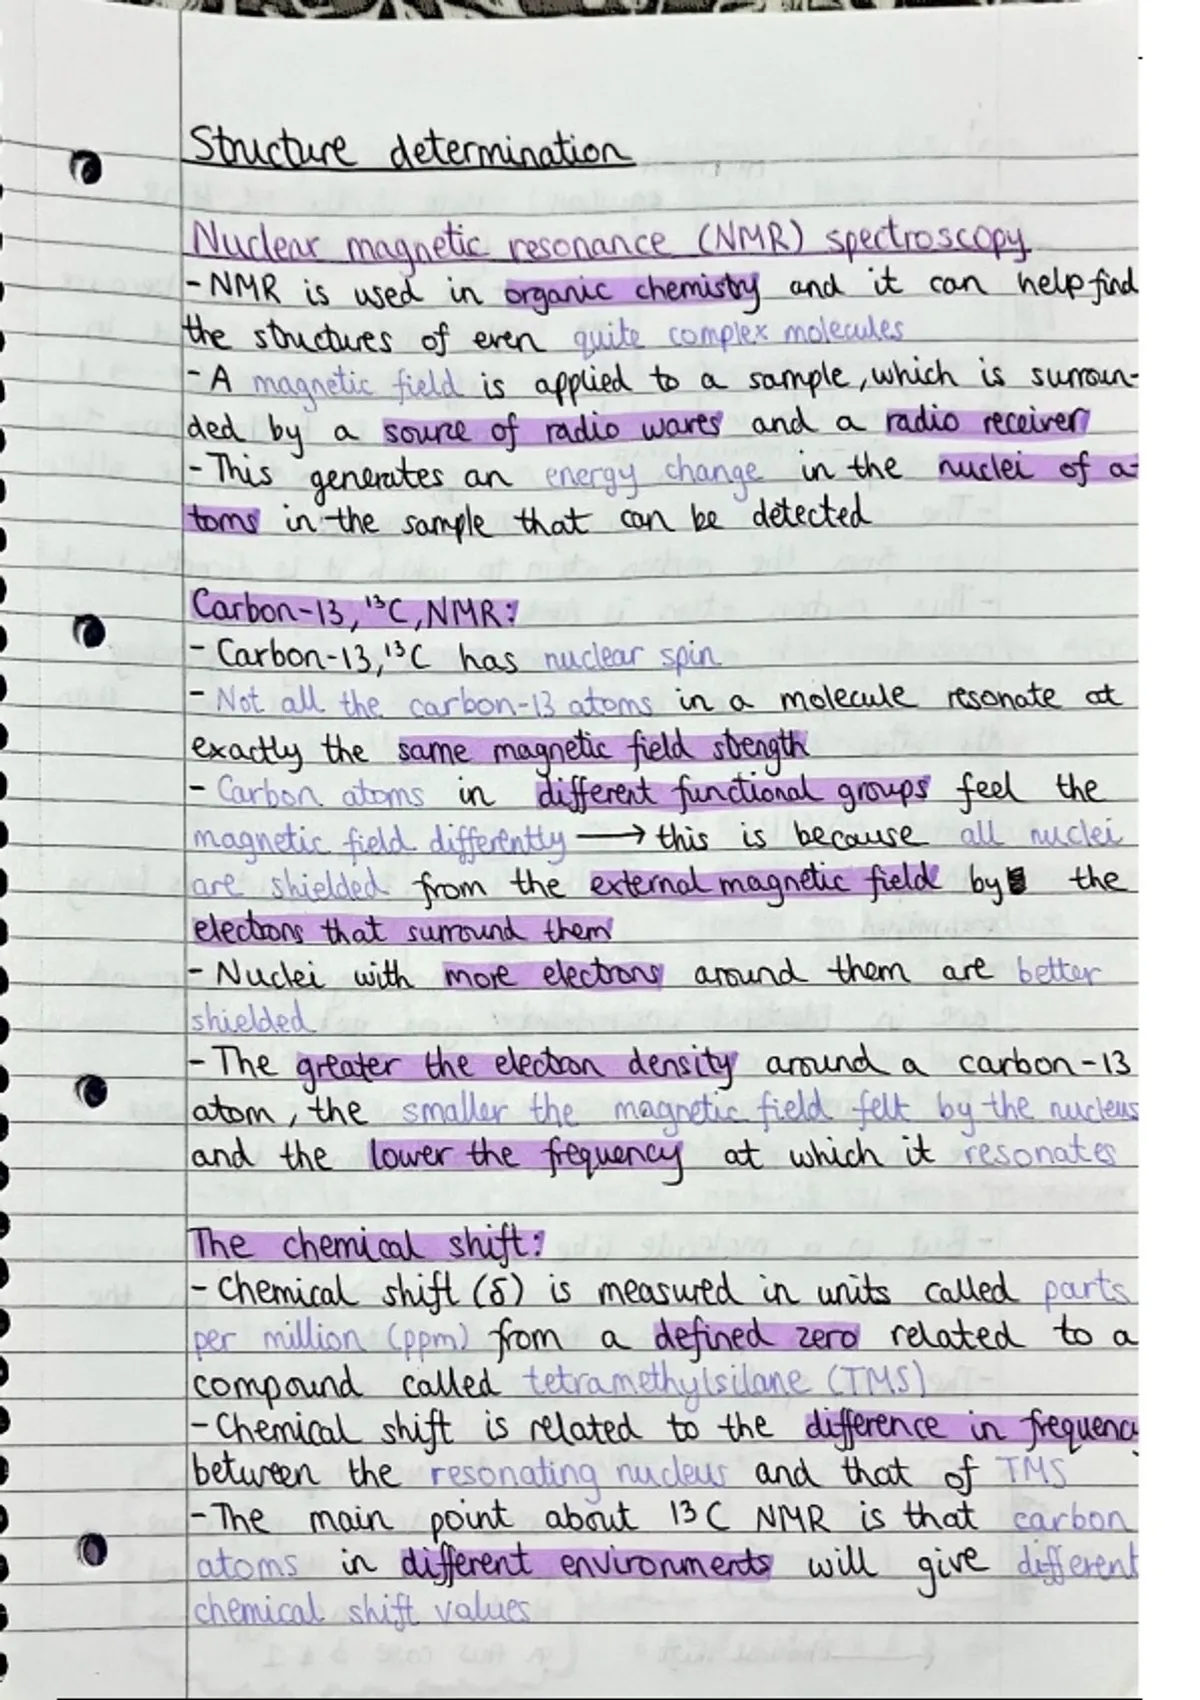 Structure determination
Nuclear magnetic resonance (NMR) spectroscopy
- NMR is used in organic chemistry and it can help find
the structures of even quite complex molecules
- A magnetic field is applied to a sample, which is surroun-
ded by a source of radio waves and a radio receiver
- This generates an energy change in the nuclei of a-
toms in the sample that can be detected
Carbon-13, ¹³C, NMR:
- Carbon-13, ¹³C has nuclear spin
- Not all the carbon-13 atoms in a molecule resonate at
exactly the same magnetic field strength
- Carbon atoms in different functional groups feel the
magnetic field differently ⟶ this is because all nuclei
are shielded from the external magnetic field by the
electrons that surround them
- Nuclei with more electrons around them are better
shielded
- The greater the electron density around a carbon-13
atom, the smaller the magnetic field felt by the nucleus
and the lower the frequency at which it resonates
The chemical shift:
- Chemical shift (δ) is measured in units called parts
per million (ppm) from a defined zero related to a
compound called tetramethylsilane (TMS)
- Chemical shift is related to the difference in frequency
between the resonating nucleus and that of TMS
- The main point about 13C NMR is that carbon
atoms in different environments will give different
chemical shift values